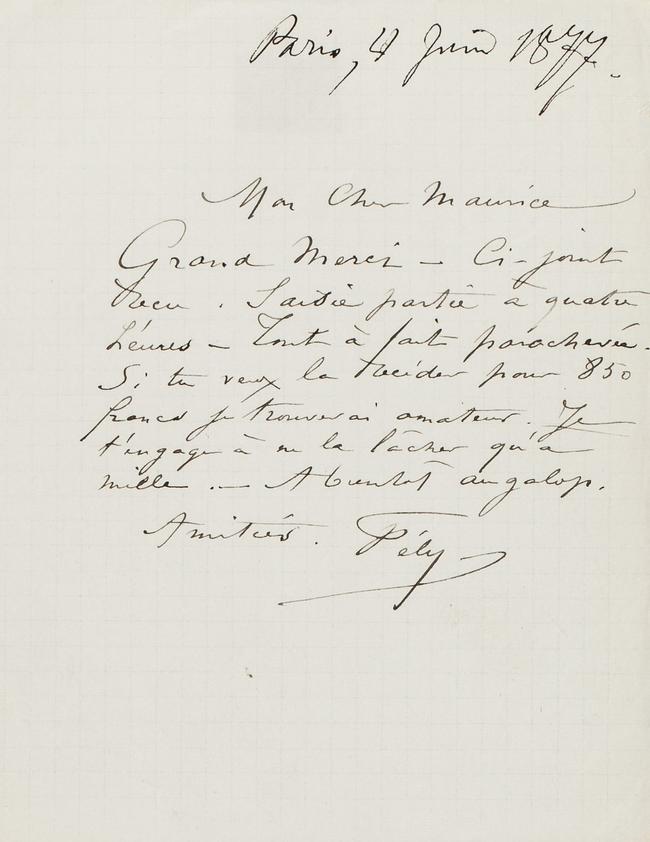 Paris, 4 Juin 1877.
Mon Cher Maurice
Grand Merci - Ci-joint
recu. Partie à quatre
heures - Tout à fait parachevée.
Si tu veux la céder pour 850
francs je trouverai amateur. Je
t'engage à ne la lâcher qu'à
mille. - A bientôt au galop.
Amitiés. Pély